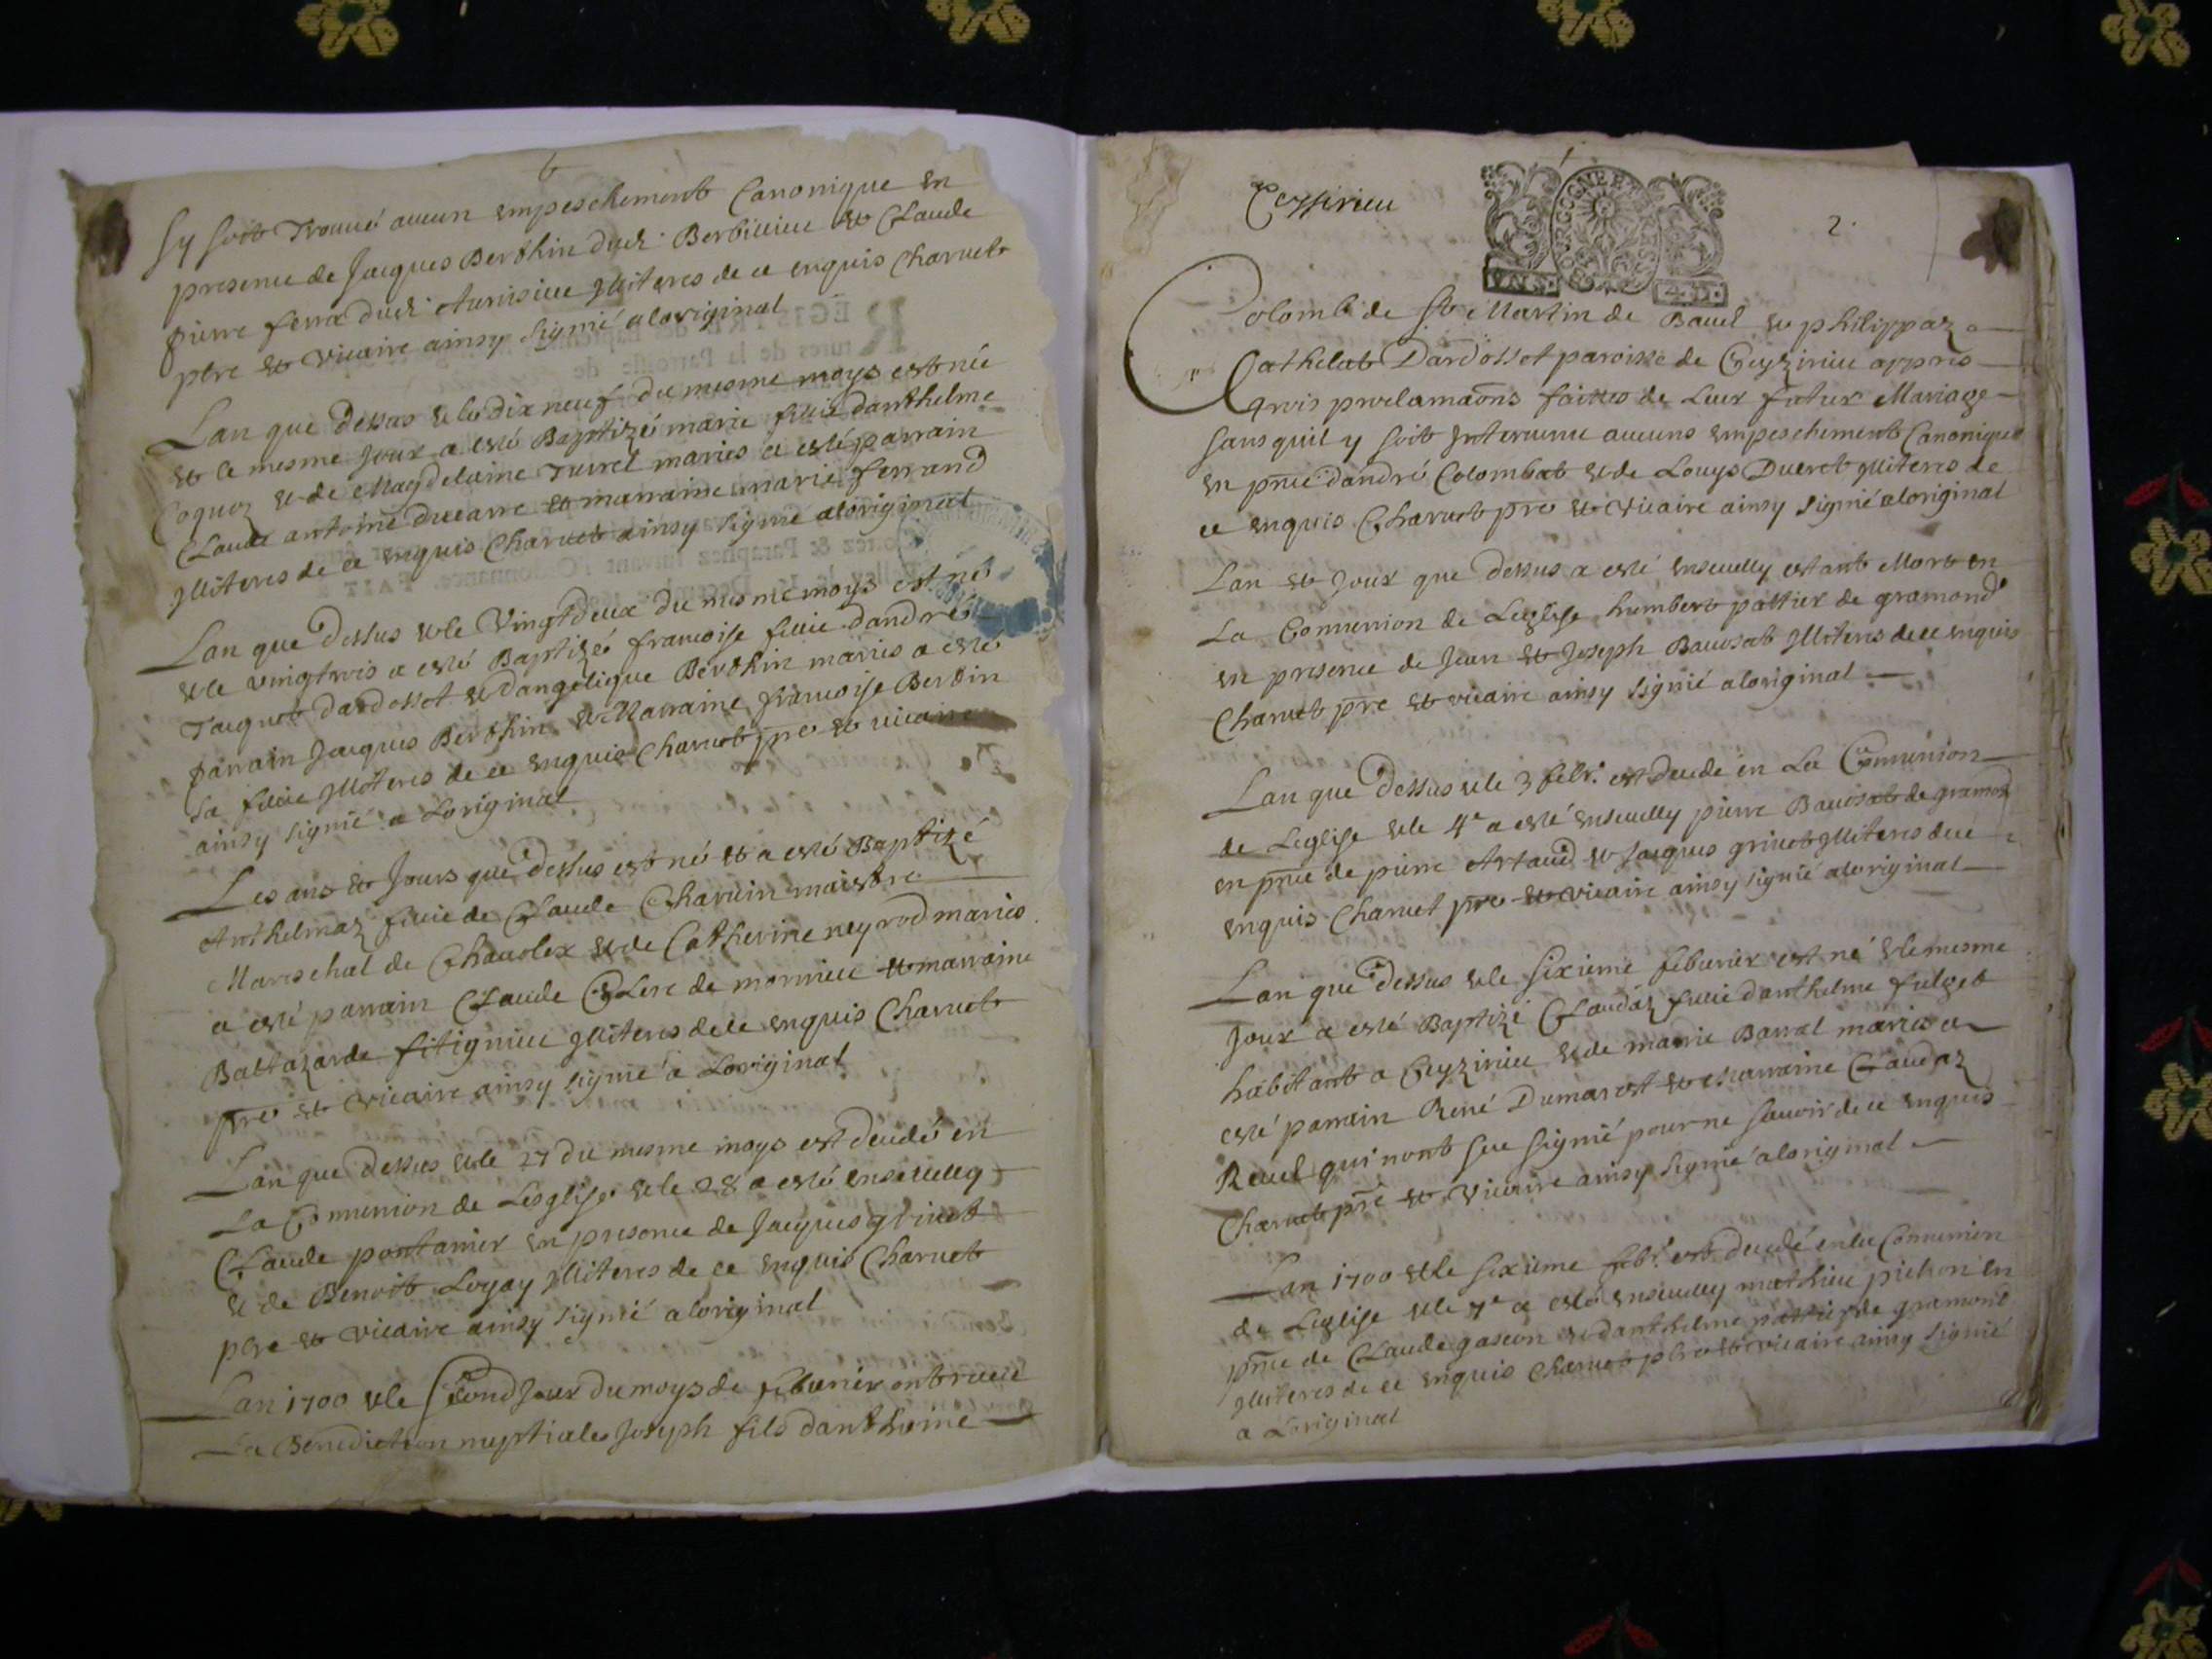 Sy soit Trouué aucun empeschement Canonique en
presence de Jacques Berthin dud: Berbiuieu et Claude
pierre ferra dud: Auriuieu illiteres de ce enquis Charuet
ptre et vicaire ainsy signié a loriginal
Lan que dessus et le dix neuf du mesme moys est née
et le mesme Jour a esté Baptizé marie fillie danthelme
Coquoz et de Magdelaine Turrel mariés a esté parrain
Claude antoine ducarre et marraine marie ferrand
illiteres de ce enquis Charuet ainsy signié aloriginal
Lan que dessus et le Vingtdeux du mesme moys est né
et le vingtrois a esté Baptizé francoise fillie dandré
Jacquet dardosset et dangelique Berthin mariés a esté
parrain Jacques Berthin et Marraine francoise Berthin
sa fillie illiteres de ce enquis Charuet pre et vicaire
ainsy signié a Loriginal
Les ans et Jours que dessus est né et a esté Baptizé
Anthelmaz fillie de Claude Charuin maistre
Mareschal de Chauolex et de Catherine neyrod mariés
a esté parrain Claude Clerc de mornieu et marraine
Baltazarde fitignieu illiteres de ce enquis Charuet
pre et vicaire ainsy signié a Loriginal
Lan que dessus et le 27 du mesme moys est decedé en
La Communion de Lesglise et le 28 a esté enseuelly
Claude pontanier en presence de Jacques griuet
et de Benoit Logay illiteres de ce enquis Charuet
ptre et vicaire ainsy signié a loriginal
Lan 1700 et le second Jour du moys de feburier ont receu
La Benediction nuptiale Joseph fils danthoine
Ceyzirieu
2.
BOURGOGNE ET BRESSE
Colomb de St Martin de Bauel et philippaz
Cathelat Dardosset paroisse de Ceyzirieu appres
trois proclamaons faittes de Leur futur Mariage
sans quil y soit Interuenu aucuns empeschement Canonique
en pnce dandré Colombat et de Louys Ducret illiteres de
ce enquis Charuet pre et vicaire ainsy signié aloriginal
Lan et Jour que dessus a esté enseuelly estant Mort en
La Communion de Leglise humbert pattier de gramond
en presence de Jean et Joseph Bauosat illiteres de ce enquis
Charuet pre et vicaire ainsy signié aloriginal
Lan que dessus et le 3 febr. est decedé en La Communion
de Leglise et le 4e a esté enseuelly pierre Bauosat de gramond
en pnce de pierre Artaud et Jacques griuet illiteres de ce
enquis Charuet pre et vicaire ainsy signié aloriginal
Lan que dessus et le sixieme feburier est né et le mesme
Jour a esté Baptizé Claudaz fillie danthelme fulget
habitant a Ceyzirieu et de marie Barral mariés a
esté parrain René Dumarest et marraine Claudaz
Reuel qui nont sceu signié pour ne scauoir de ce enquis
Charuet pre et vicaire ainsy signié aloriginal
Lan 1700 et le sixieme febr. est decedé en la Communion
de Leglise et le 7e a esté enseuelly mathieu pichon en
pnce de Claude gascon et danthelme pattier de gramont
illiteres de ce enquis Charuet ptre et vicaire ainsy signié
a Loriginal